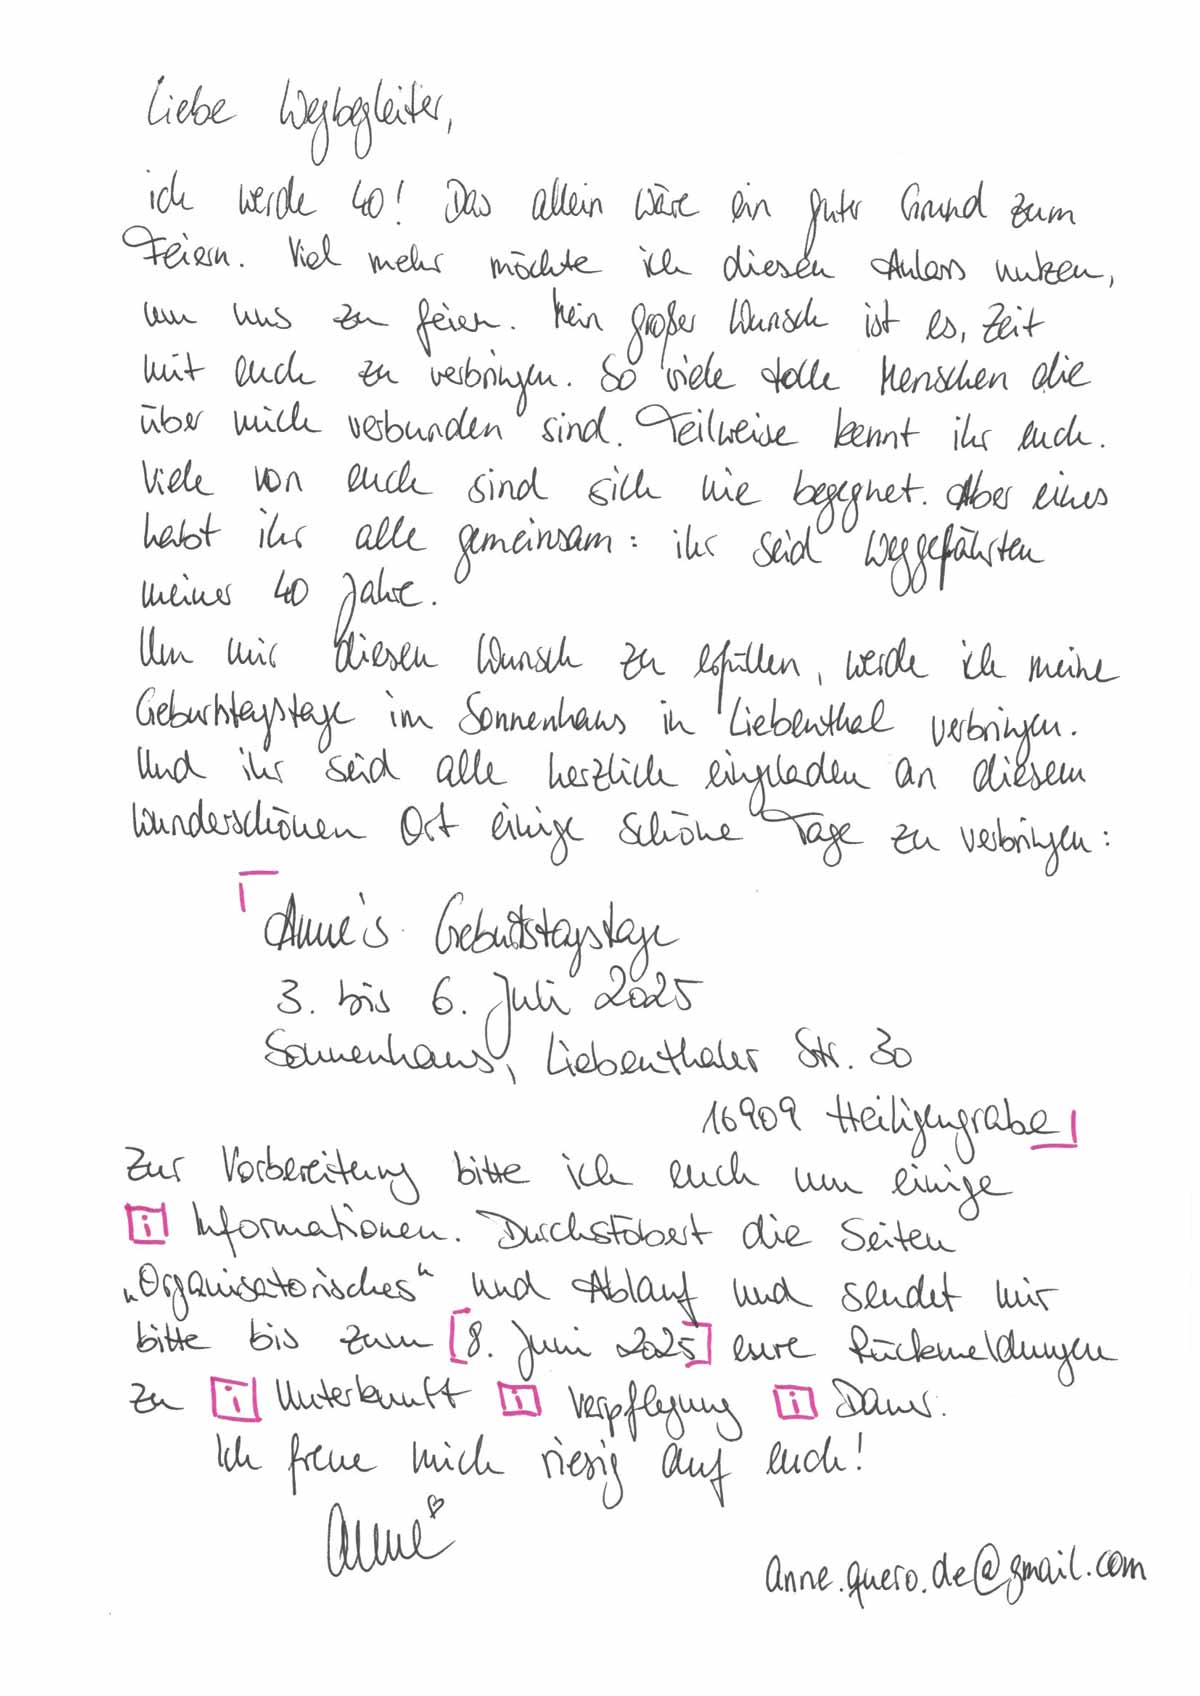 Liebe Wegbegleiter,
ich werde 40! Das allein wäre ein guter Grund zum
Feiern. Viel mehr möchte ich diesen Anlass nutzen,
um uns zu feiern. Mein großer Wunsch ist es, Zeit
mit euch zu verbringen. So viele tolle Menschen die
über mich verbunden sind. Teilweise kennt ihr euch.
Viele von euch sind sich nie begegnet. Aber eines
habt ihr alle gemeinsam: ihr seid Weggefährten
meiner 40 Jahre.
Um mir diesen Wunsch zu erfüllen, werde ich meine
Geburtstagstage im Sonnenhaus in Liebenthal verbringen.
Und ihr seid alle herzlich eingeladen an diesem
wunderschönen Ort einige schöne Tage zu verbringen:
Anne's Geburtstagstage
3. bis 6. Juli 2025
Sonnenhaus, Liebenthaler Str. 30
16909 Heiligengrabe
Zur Vorbereitung bitte ich euch um einige
i Informationen. Durchstöbert die Seiten
„Organisatorisches“ und Ablauf und sendet mir
bitte bis zum [8. Juni 2025] eure Rückmeldungen
zu i Unterkunft i Verpflegung i Dauer.
Ich freue mich riesig auf euch!
Anne
anne.quero.de@gmail.com